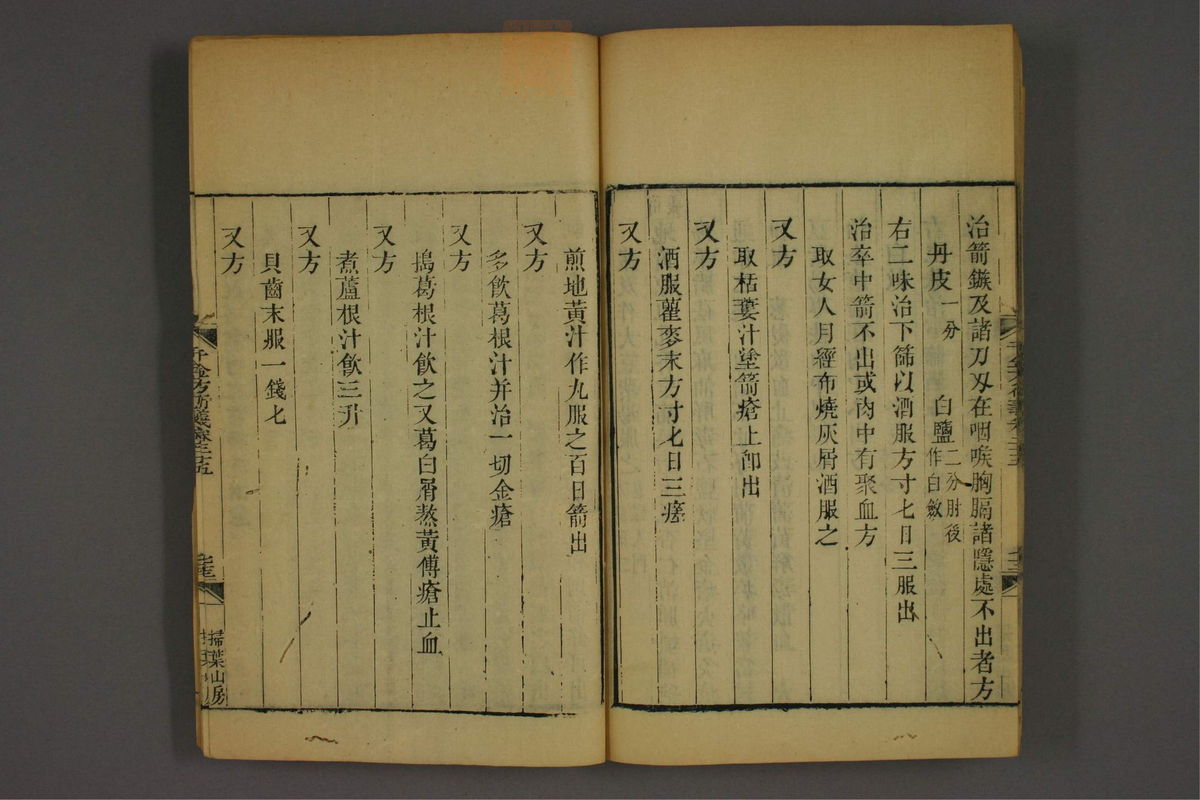 治箭鏃及諸刀刃在咽喉胸膈諸隱處不出者方
丹皮一分 白鹽二分肘後作白斂
右二味治下篩以酒服方寸匕日三服出
治卒中箭不出或肉中有聚血方
取女人月經布燒灰屑酒服之
又方
取栝蔞汁塗箭瘡上卽出
又方
酒服瞿麥末方寸匕日三瘥
又方
煎地黃汁作丸服之百日箭出
又方
多飲葛根汁并治一切金瘡
又方
搗葛根汁飲之又葛白屑熬黃傅瘡止血
又方
煮蘆根汁飲三升
又方
貝齒末服一錢匕
又方
千金方衍義卷二十五
掃葉山房